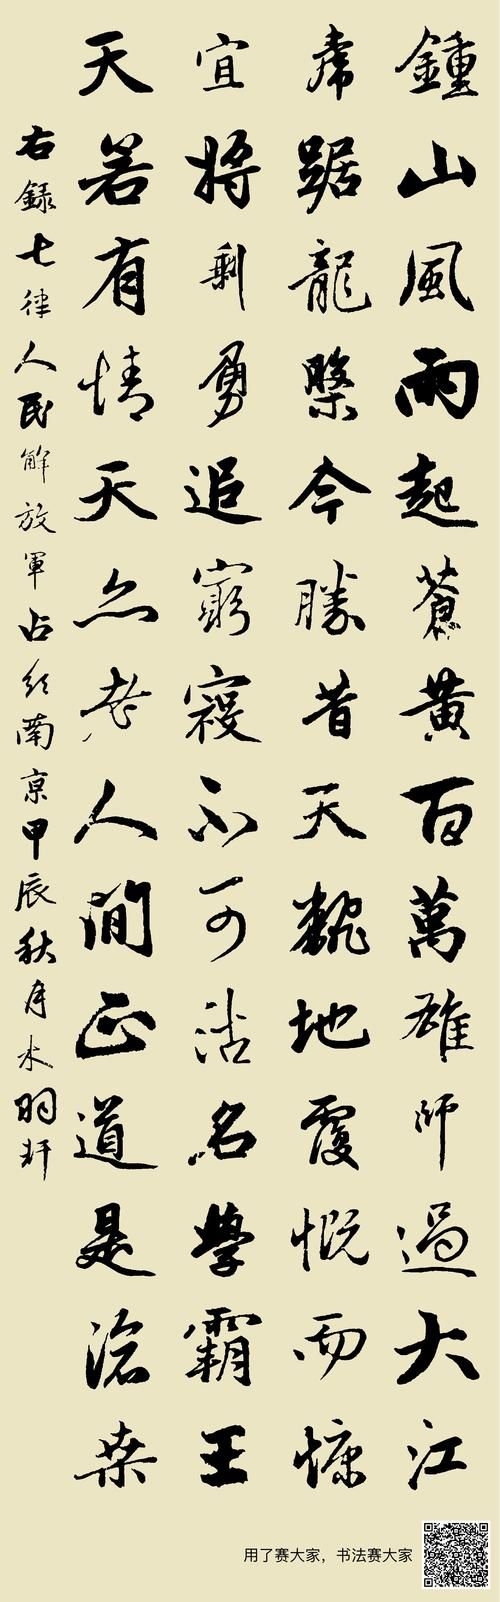 鍾山風雨起蒼黃百萬雄師過大江
虎踞龍槃今勝昔天翻地覆慨而慷
宜將剩勇追窮寇不可沽名學霸王
天若有情天亦老人間正道是滄桑
右錄七律人民解放軍占領南京甲辰秋月
用了赛大家，书法赛大家